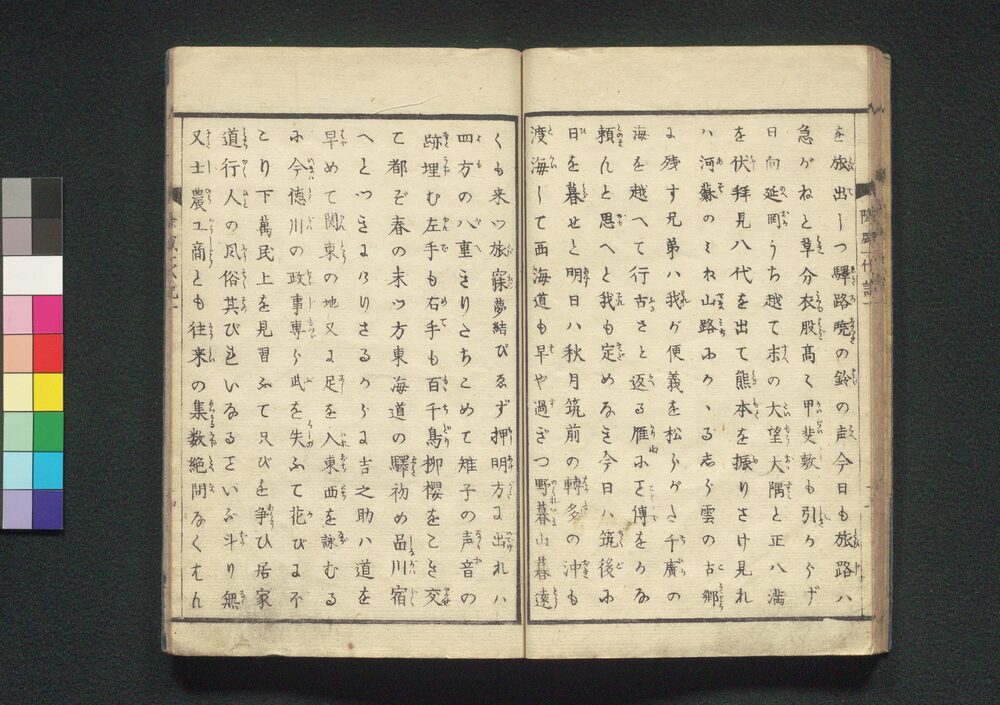 を旅出しつ驛路暁の鈴の声今日も旅路ハ
急がねと草分衣股髙く甲斐敷も引からげ
日向延岡うち越て末の大望大隅と正八満
を伏拝見八代を出て熊本を振りさけ見れ
ハ河蘇のミね山路にかゝる志ら雲の古郷
に残す兄弟ハ我が便義を松らがた千廣の
海を越へて行古さと返る雁に言傳をかな
頼んと思へと我も定めなき今日ハ筑後に
日を暮せと明日ハ秋月筑前の轉多の沖も
渡海して西海道も早や過ぎつ野暮山暮遠
くも来ツ旅寐夢結びゑず押明方に出れハ
四方の八重きりたちこめて雉子の声音の
跡埋む左手も右手も百千鳥柳櫻をこき交
て都ぞ春の末ツ方東海道の驛初め品川宿
へとつきにけりさるからに吉之助ハ道を
早めて関東の地又に足を入東西を詠むる
に今徳川の政事専ら武を失ふて花びに不
こり下萬民上を見習ふて只びを争ひ居家
道行人の風俗其びれいなる言いふ斗り無
又士農工商とも往来の集数絶間なくはん